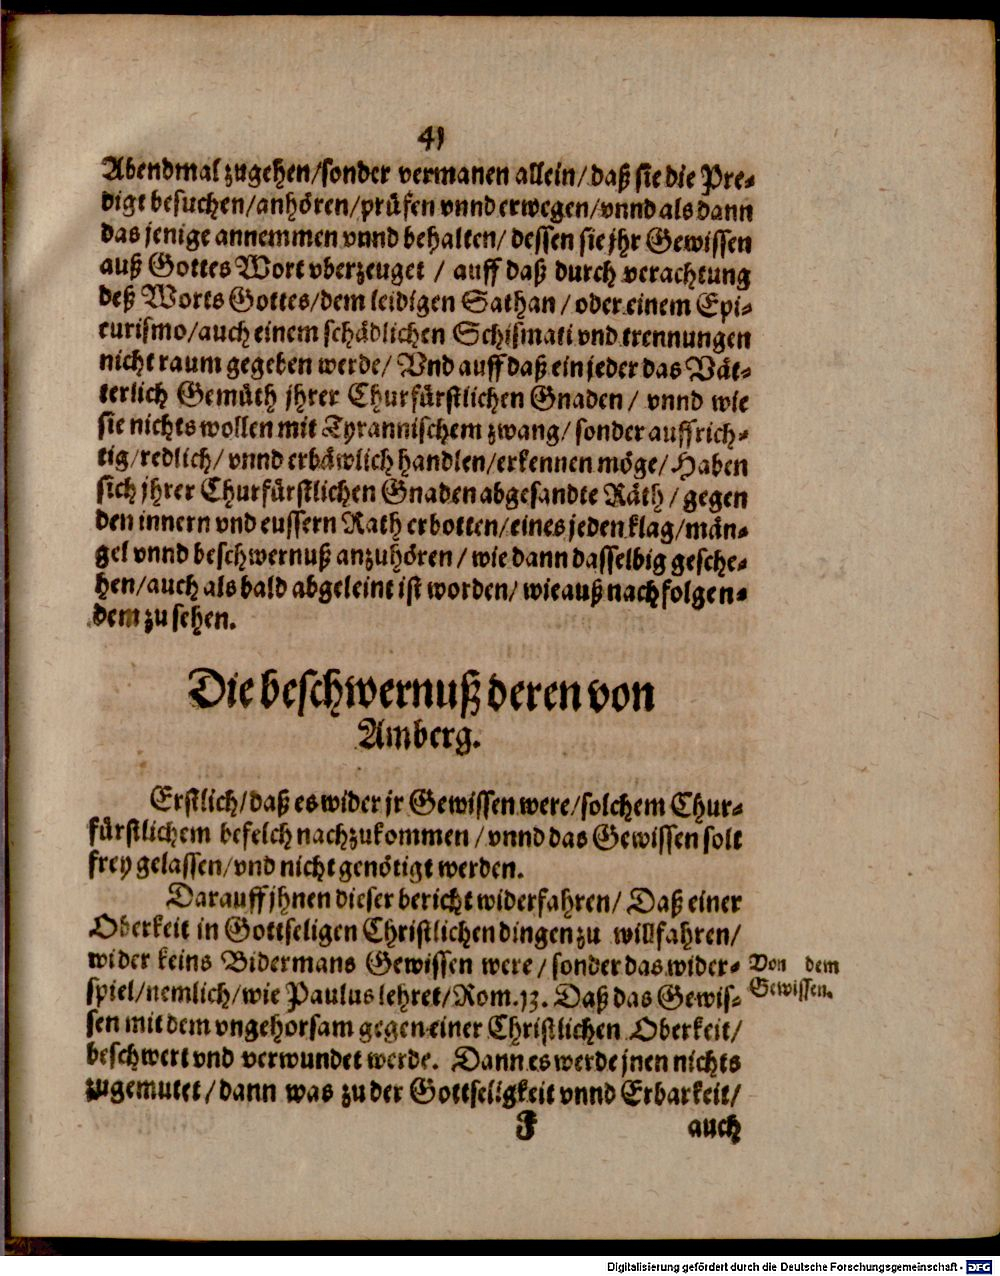 41
Abendmal zugehen/sonder vermanen allein/daß sie die Pre-
digt besuchen/anhören/prüfen vnnd erwegen/vnnd als dann
das jenige annemmen vnnd behalten/ dessen sie jhr Gewissen
auß Gottes Wort vberzeuget / auff daß durch verachtung
deß Worts Gottes/dem leidigen Sathan / oder einem Epi-
curismo/auch einem schädlichen Schismati vnd trennungen
nicht raum gegeben werde/ Vnd auff daß ein jeder das Vät-
terlich Gemüth jhrer Churfürstlichen Gnaden / vnnd wie
sie nichts wollen mit Tyrannischem zwang/ sonder auffrich-
tig/redlich/ vnnd erbäwlich handlen/erkennen möge/ Haben
sich jhrer Churfürstlichen Gnaden abgesandte Räth / gegen
den innern vnd eussern Rath erbotten/eines jeden klag/män-
gel vnnd beschwernuß anzuhören / wie dann dasselbig gesche-
hen/auch als bald abgeleint ist worden/ wie auß nachfolgen-
dem zu sehen.
Die beschwernuß deren von
Amberg.
Erstlich/daß es wider jr Gewissen were/solchem Chur-
fürstlichem befelch nachzukommen / vnnd das Gewissen solt
frey gelassen/vnd nicht genötigt werden.
Darauff jhnen dieser bericht widerfahren/ Daß einer
Oberkeit in Gottseligen Christlichen dingen zu willfahren/
wider keins Bidermans Gewissen were / sonder das wider-
spiel/nemlich/wie Paulus lehret/Rom.13. Daß das Gewis-
sen mit dem vngehorsam gegen einer Christlichen Oberkeit/
beschwert vnd verwundet werde. Dann es werde jnen nichts
zugemutet / dann was zu der Gottseligkeit vnnd Erbarkeit/
Von dem
Gewissen.
J
auch
Digitalisierung gefördert durch die Deutsche Forschungsgemeinschaft - DFG